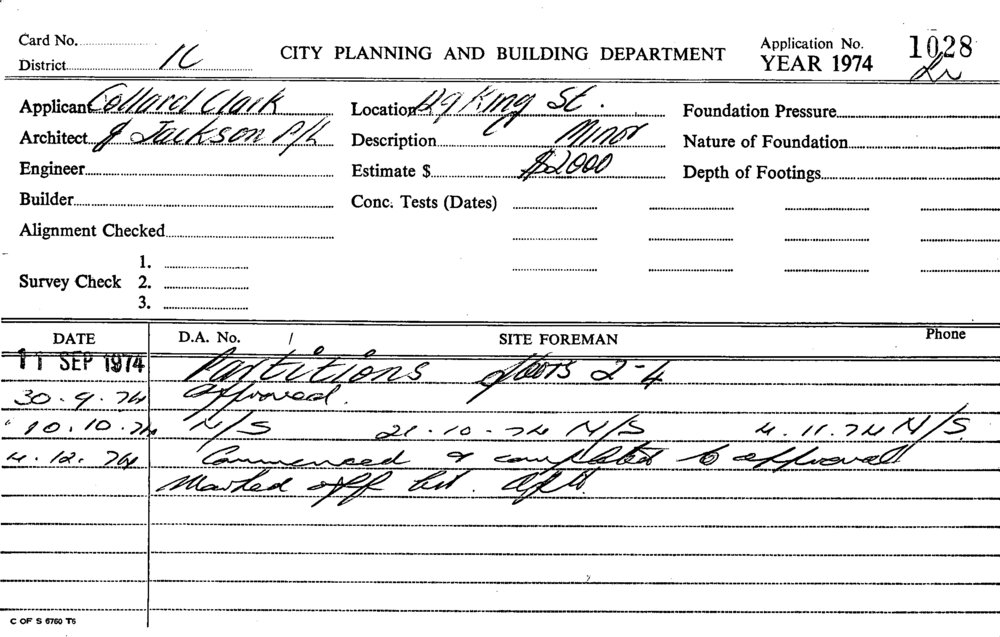 Card No.
District 1C
CITY PLANNING AND BUILDING DEPARTMENT
Application No. 1028
YEAR 1974
Applicant Collard Clark
Architect & Jackson P/L
Engineer
Builder
Alignment Checked
Survey Check 1.
2.
3.
Location 29 King St.
Description Minor
Estimate $ $2000
Conc. Tests (Dates)
Foundation Pressure
Nature of Foundation
Depth of Footings
DATE D.A. No. / SITE FOREMAN Phone
11 SEP 1974 Partitions floors 2-4
30.9.74 approved.
10.10.74 N/S 21.10.74 N/S 4.11.74 N/S
4.12.74 Commenced & completed to approval
Marked off
C OF S 6760 T6